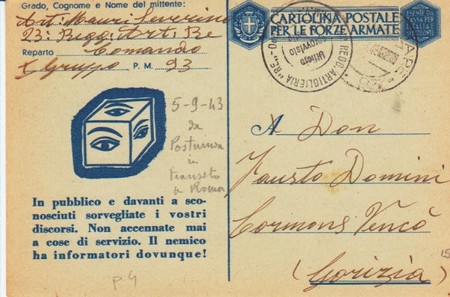 Grado, Cognome e Nome del mittente:
Art. Mauri Severino
23: Regg. Art. Re
Reparto Comando
I Gruppo P. M. 93
5-9-43
da
Postumia
in
transito
a Roma
In pubblico e davanti a sco-
nosciuti sorvegliate i vostri
discorsi. Non accennate mai
a cose di servizio. Il nemico
ha informatori dovunque!
p. G
CARTOLINA POSTALE
PER LE FORZE ARMATE
REGG. ARTIGLIERIA "RE"
Ufficio
A Don
Fausto Domini
Cormons Vencò
(Gorizia)
15